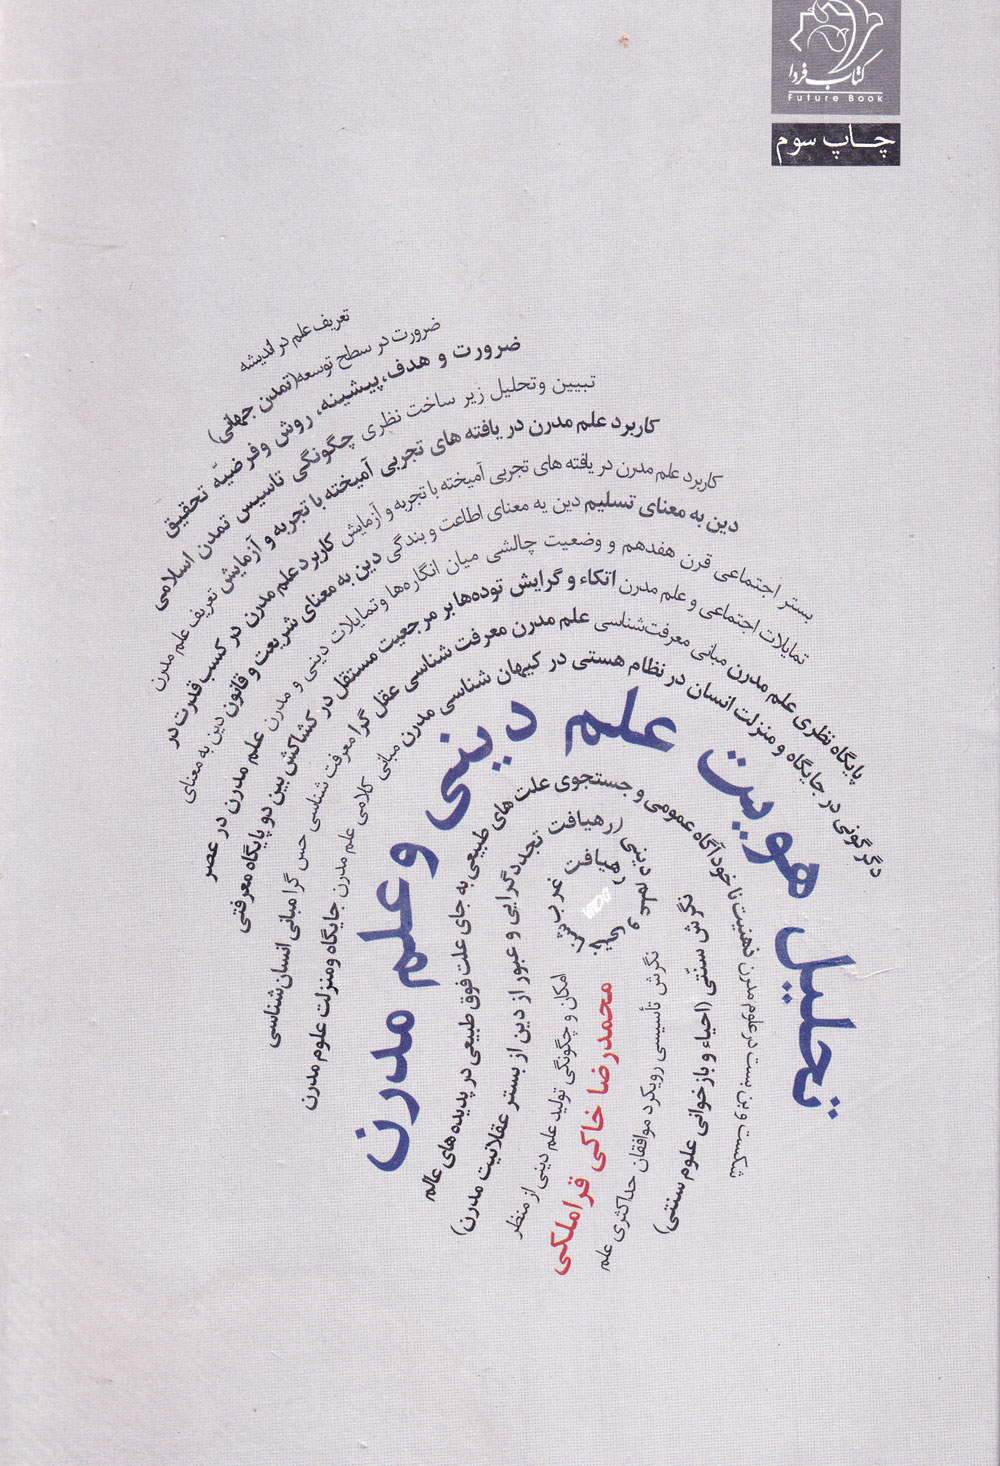 کتاب فردا
Future Book
چاپ سوم
تعریف علم در اندیشه
ضرورت در سطح توسعه (تمدن جهانی)
ضرورت و هدف، پیشینه، روش و فرضیّه تحقیق
تبیین و تحلیل زیر ساخت نظری چگونگی تاسیس تمدن اسلامی
کاربرد علم مدرن در یافته های تجربی آمیخته با تجربه و آزمایش تعریف علم مدرن
کاربرد علم مدرن در یافته های تجربی آمیخته با تجربه و آزمایش کاربرد علم مدرن در کسب قدرت در
دین به معنای تسلیم دین به معنای اطاعت و بندگی دین به معنای شریعت و قانون دین به معنای
بستر اجتماعی قرن هفدهم و وضعیت چالشی میان انگاره‌ها و تمایلات دینی و مدرن علم مدرن در عصر
تمایلات اجتماعی و علم مدرن اتکاء و گرایش توده‌ها بر مرجعیت مستقل در کشاکش بین دو پایگاه معرفتی
پایگاه نظری علم مدرن مبانی معرفت‌شناسی علم مدرن معرفت شناسی عقل گرا معرفت شناسی حس گرا مبانی انسان‌شناسی
دگرگونی در جایگاه و منزلت انسان در نظام هستی در کیهان شناسی مدرن مبانی کلامی علم مدرن جایگاه ومنزلت علوم مدرن
تحلیل هویت علم دینی و علم مدرن
شکست و بن بست در علوم مدرن ذهنیت ناخودآگاه عمومی و جستجوی علت های طبیعی به جای علت فوق طبیعی در پدیده های عالم
نگرش سنّتی (احیاء و بازخوانی علوم سنتی)
دینی (رهیافت تجددگرایی و عبور از دین از بستر عقلانیت مدرن)
نگرش تأسیسی رویکرد موافقان حداکثری علم
رهیافت غرب
امکان و چگونگی تولید علم دینی از منظر
محمدرضا خاکی قراملکی